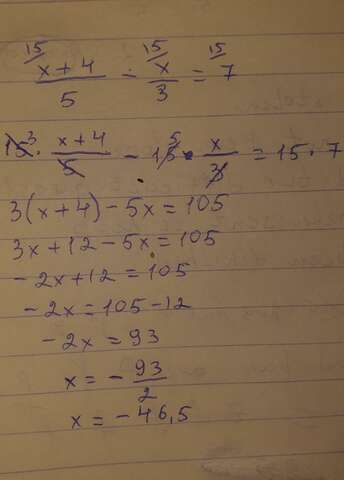 15 15 15
x + 4 / 5 - x / 3 = 7
15³ · x + 4 / 5 - 15⁵ · x / 3 = 15 · 7
3(x + 4) - 5x = 105
3x + 12 - 5x = 105
- 2x + 12 = 105
- 2x = 105 - 12
- 2x = 93
x = - 93 / 2
x = - 46,5